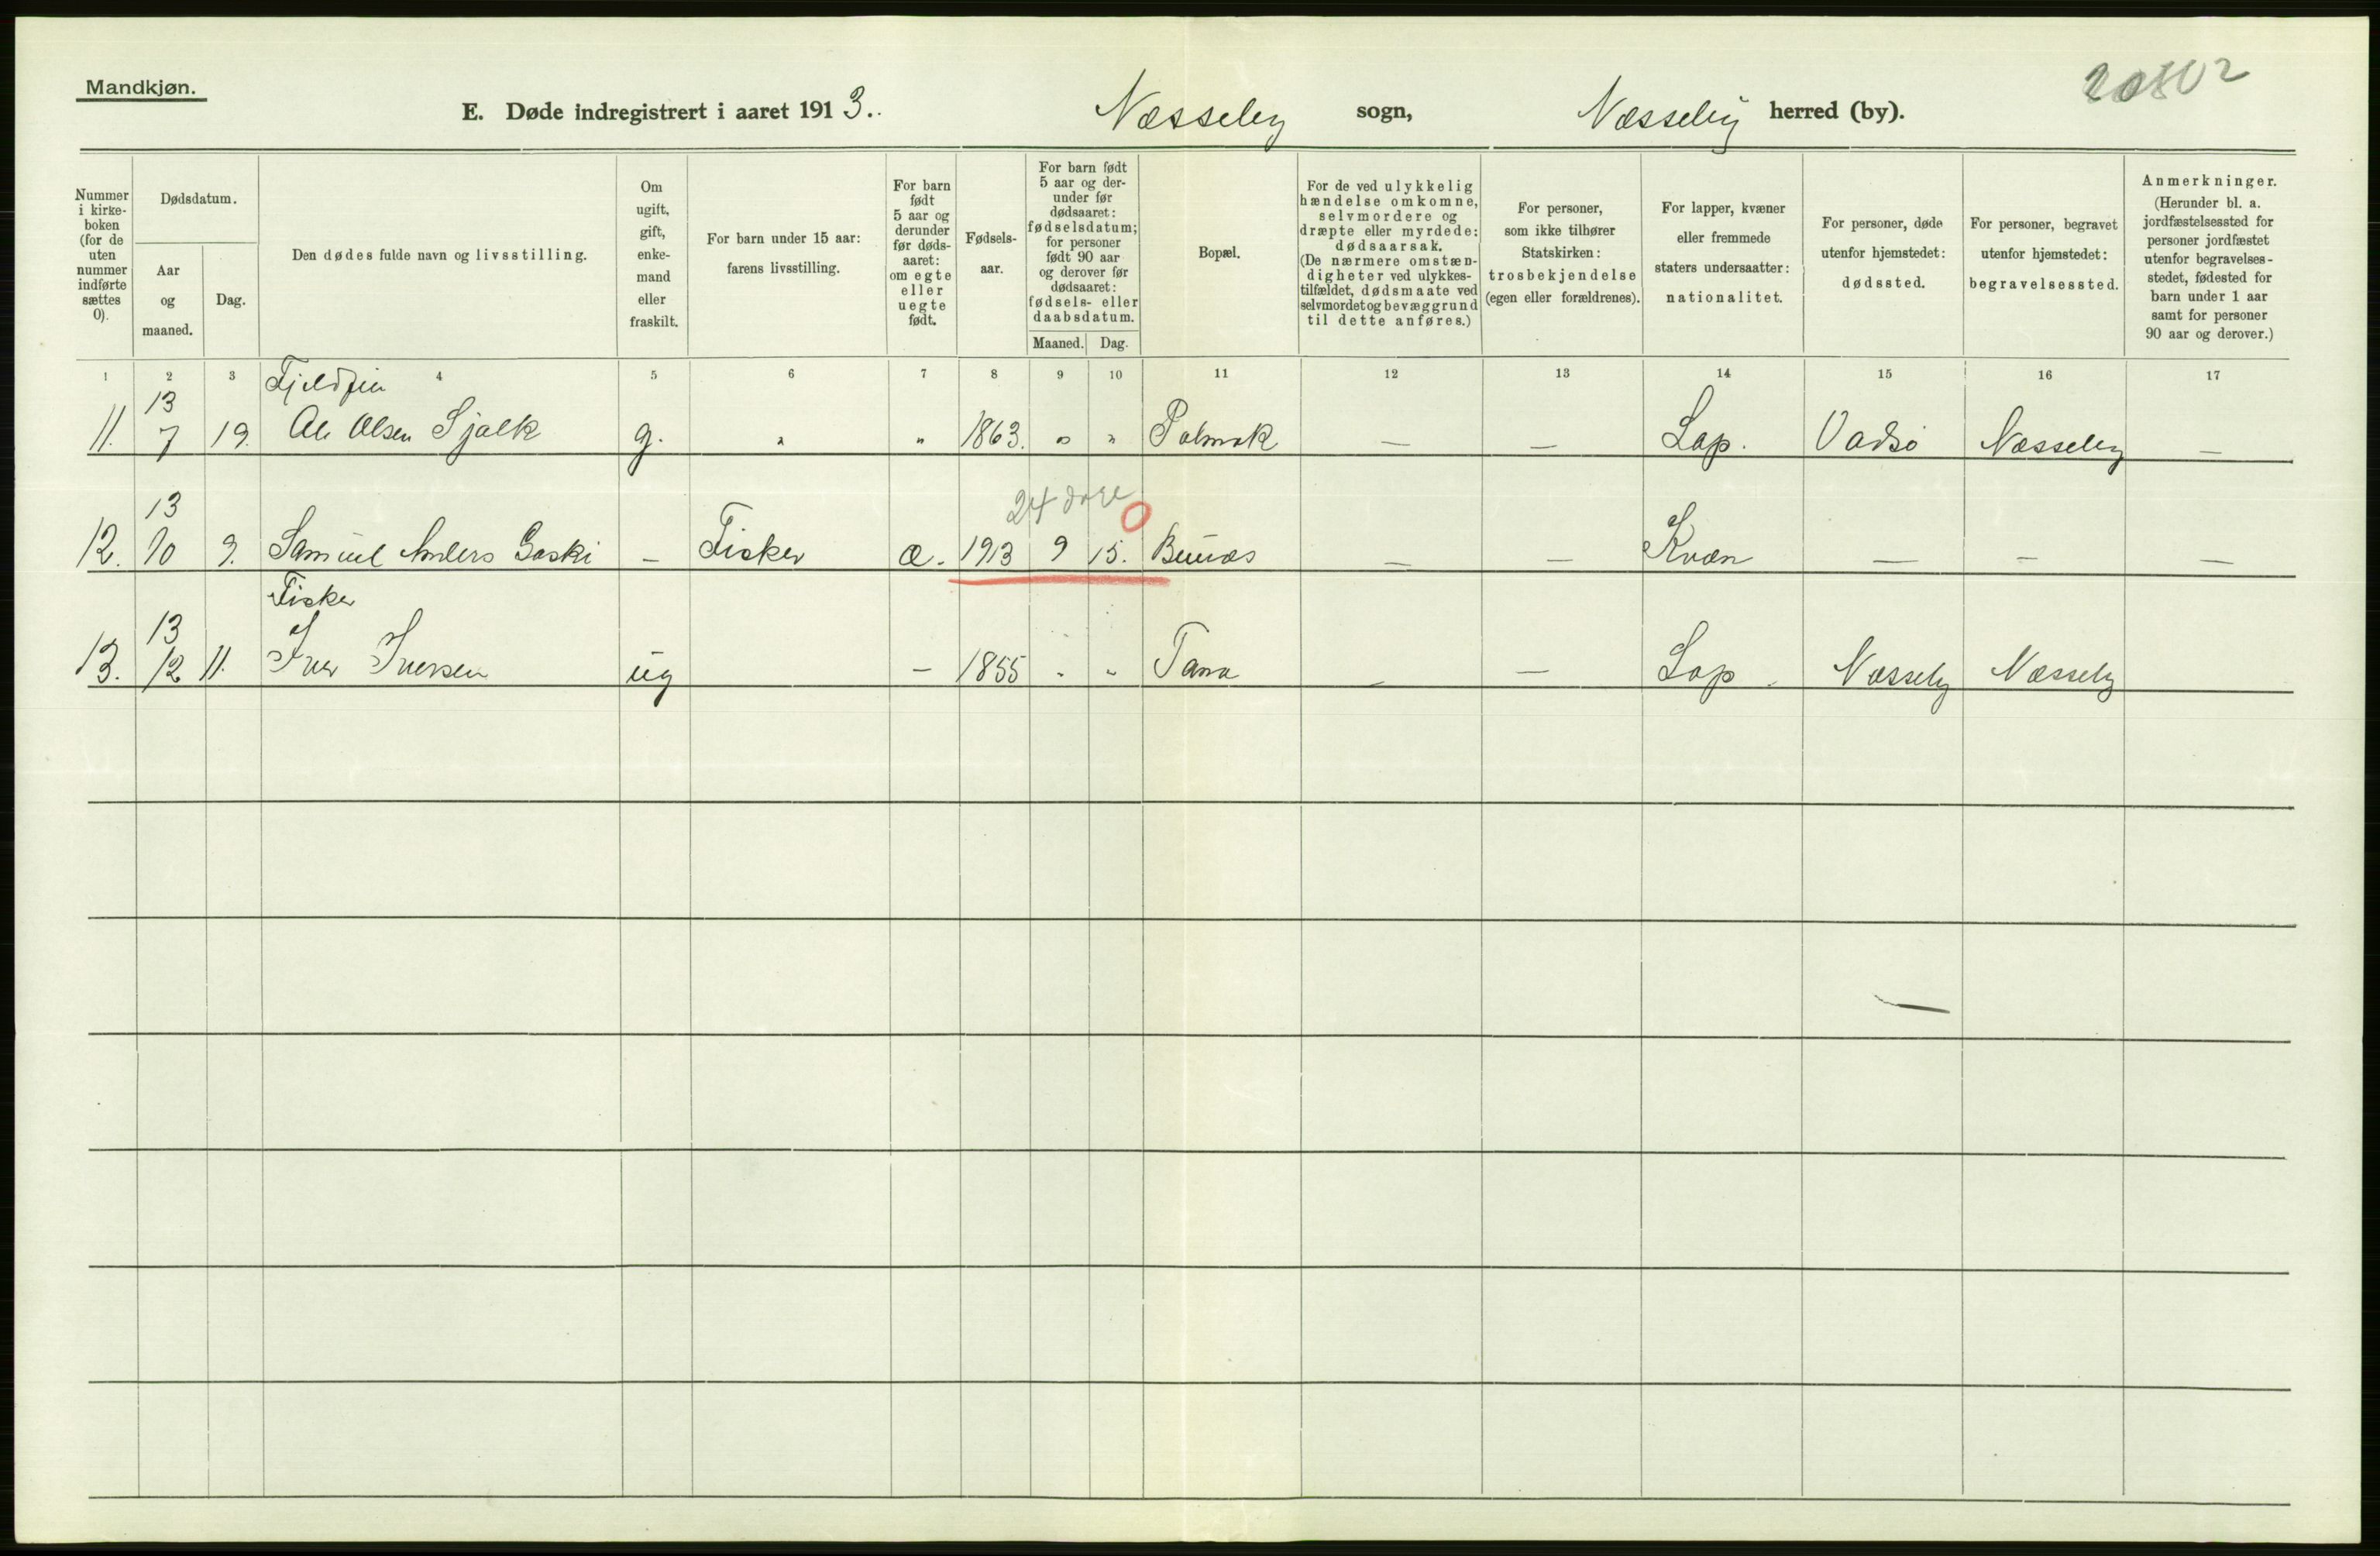 Mandkjøn.
E. Døde indregistrert i aaret 1913. Næsseby sogn, Næsseby herred (by).
Nummer i kirkeboken (for de uten nummer indførte sættes 0).
Dødsdatum.
Aar og maaned.
Dag.
Den dødes fulde navn og livsstilling.
Om ugift, gift, enkemand eller fraskilt.
For barn under 15 aar: farens livsstilling.
For barn født 5 aar og derunder før dødsaaret: om egte eller uegte født.
Fødselsaar.
For barn født 5 aar og derunder før dødsaaret: fødselsdatum; for personer født 90 aar og derover før dødsaaret: fødsels- eller daabsdatum.
Maaned. Dag.
Bopæl.
For de ved ulykkelig hændelse omkomne, selvmordere og dræpte eller myrdede: dødsaarsak. (De nærmere omstændigheter ved ulykkestilfældet, dødsmaate ved selvmordet og bevæggrund til dette anføres.)
For personer, som ikke tilhører Statskirken: trosbekjendelse (egen eller forældrenes).
For lapper, kvæner eller fremmede staters undersaatter: nationalitet.
For personer, døde utenfor hjemstedet: dødssted.
For personer, begravet utenfor hjemstedet: begravelsessted.
Anmerkninger. (Herunder bl. a. jordfæstelsessted for personer jordfæstet utenfor begravelsesstedet, fødested for barn under 1 aar samt for personer 90 aar og derover.)
1 2 3 4 5 6 7 8 9 10 11 12 13 14 15 16 17
Fjeldfin
13
11. 7 19. Ole Olsen Sjalk g. " " 1863. " " Polmak — — Lap. Vadsø Næsseby —
24 dage 0
13
12. 10 9. Samuel Anders Gaski — Fisker æ. 1913 9 15. Bunæs — — Kvæn — — —
Fisker
13
13. 12 11. Iver Iversen ug — 1855 " " Tana — — Lap Næsseby Næsseby